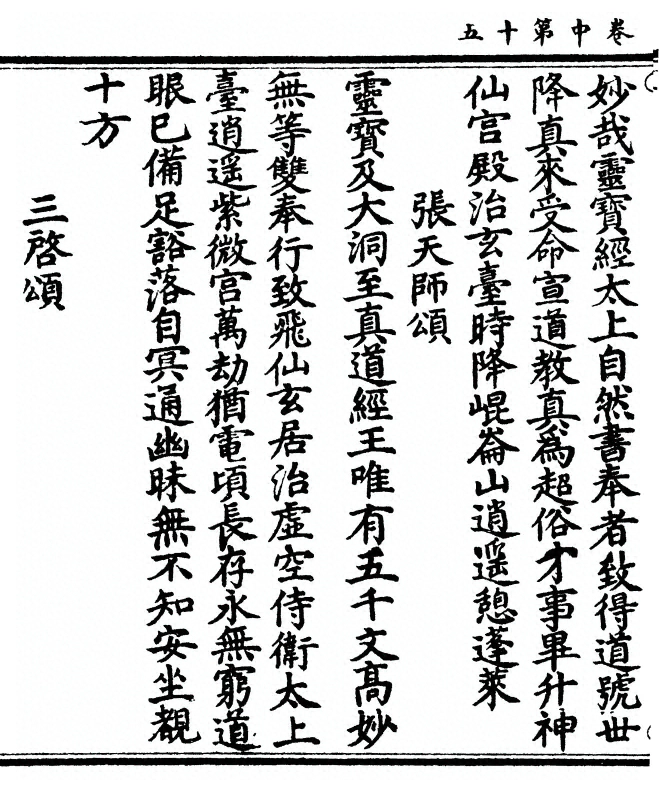 卷中第十五
妙哉靈寶經太上自然書奉者致得道號世
降真來受命宣道教真為超俗才事畢升神
仙宮殿治玄臺時降崐崙山逍遥憩蓬萊
張天師頌
靈寶及大洞至真道經王唯有五千文高妙
無等雙奉行致飛仙玄居治虛空侍衛太上
臺逍遥紫微宮萬劫猶電頃長存永無窮道
眼已備足豁落自冥通幽昧無不知安坐覩
十方
三啓頌